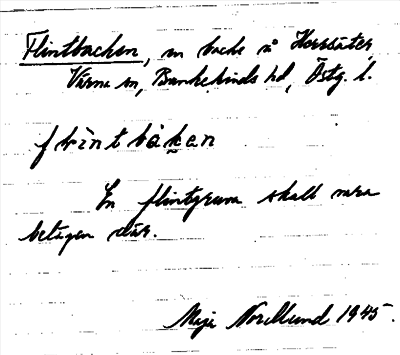 Flintbacken, en backe å Herrsäter
Värna sn, Bankekinds hd, Östg. l.
flìntbákan
En flintgruva skall vara
belägen där.
Maja Norellund 1945.